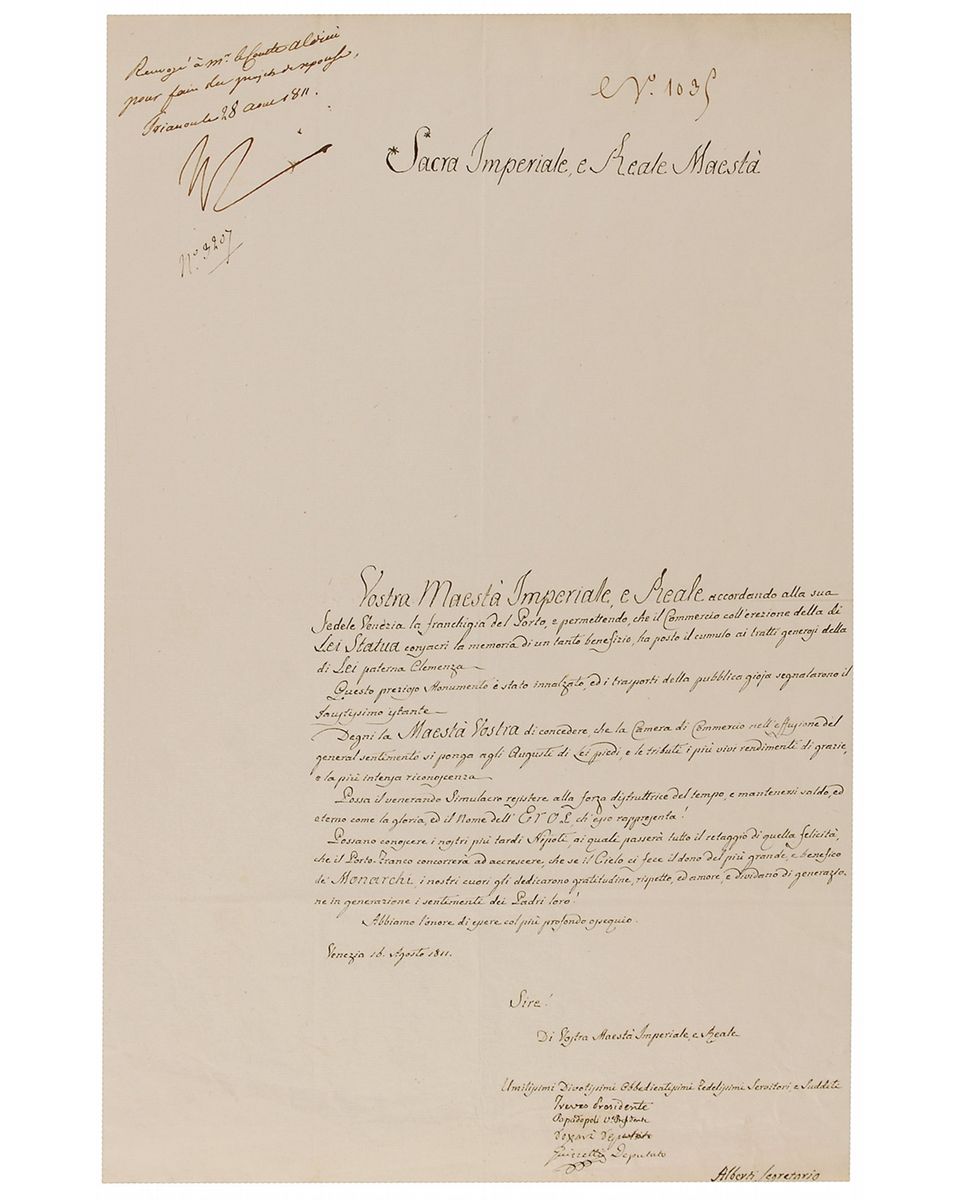 Renvoyé à Mr. le Comte Aldini
pour faire du projet de reponse,
Trianon le 28 aout 1811.
N
No. 3207
No. 1035
Sacra Imperiale, e Reale Maestà
Vostra Maestà Imperiale, e Reale accordando alla sua
Fedele Venezia la franchigia del Porto, e permettendo, che il Commercio coll'erezione della di
Lei Statua consacri la memoria di un tanto benefizio, ha posto il cumulo ai tratti generosi della
di Lei paterna Clemenza
Questo prezioso Monumento è stato innalzato, ed i trasporti della pubblica gioja segnalarono il
faustissimo istante
Degni la Maestà Vostra di concedere, che la Camera di Commercio nell'effusione del
general sentimento si ponga agli Augusti di Lei piedi, e le tributi i più vivi rendimenti di grazie,
e la più intensa riconoscenza
Possa il venerando Simulacro resistere alla forza distruttrice del tempo, e mantenersi saldo, ed
eterno come la gloria, ed il Nome dell'Eroe, ch'esso rappresenta!
Possano conoscere i nostri più tardi Nipoti, ai quali passerà tutto il retaggio di quella felicità,
che il Porto-Franco concorrerà ad accrescere, che se il Cielo ci fece il dono del più grande, e benefico
de' Monarchi, i nostri cuori gli dedicarono gratitudine, rispetto, ed amore, e dividano di generazio-
ne in generazione i sentimenti dei Padri loro!
Abbiamo l'onore di essere col più profondo ossequio.
Venezia 16. Agosto 1811.
Sire!
Di Vostra Maestà Imperiale, e Reale
Umilissimi Divotissimi Obbedientissimi Fedelissimi Servitori, e Sudditi
Treves Presidente
Papadopoli
Deputato
Deputato
Alberti Segretario